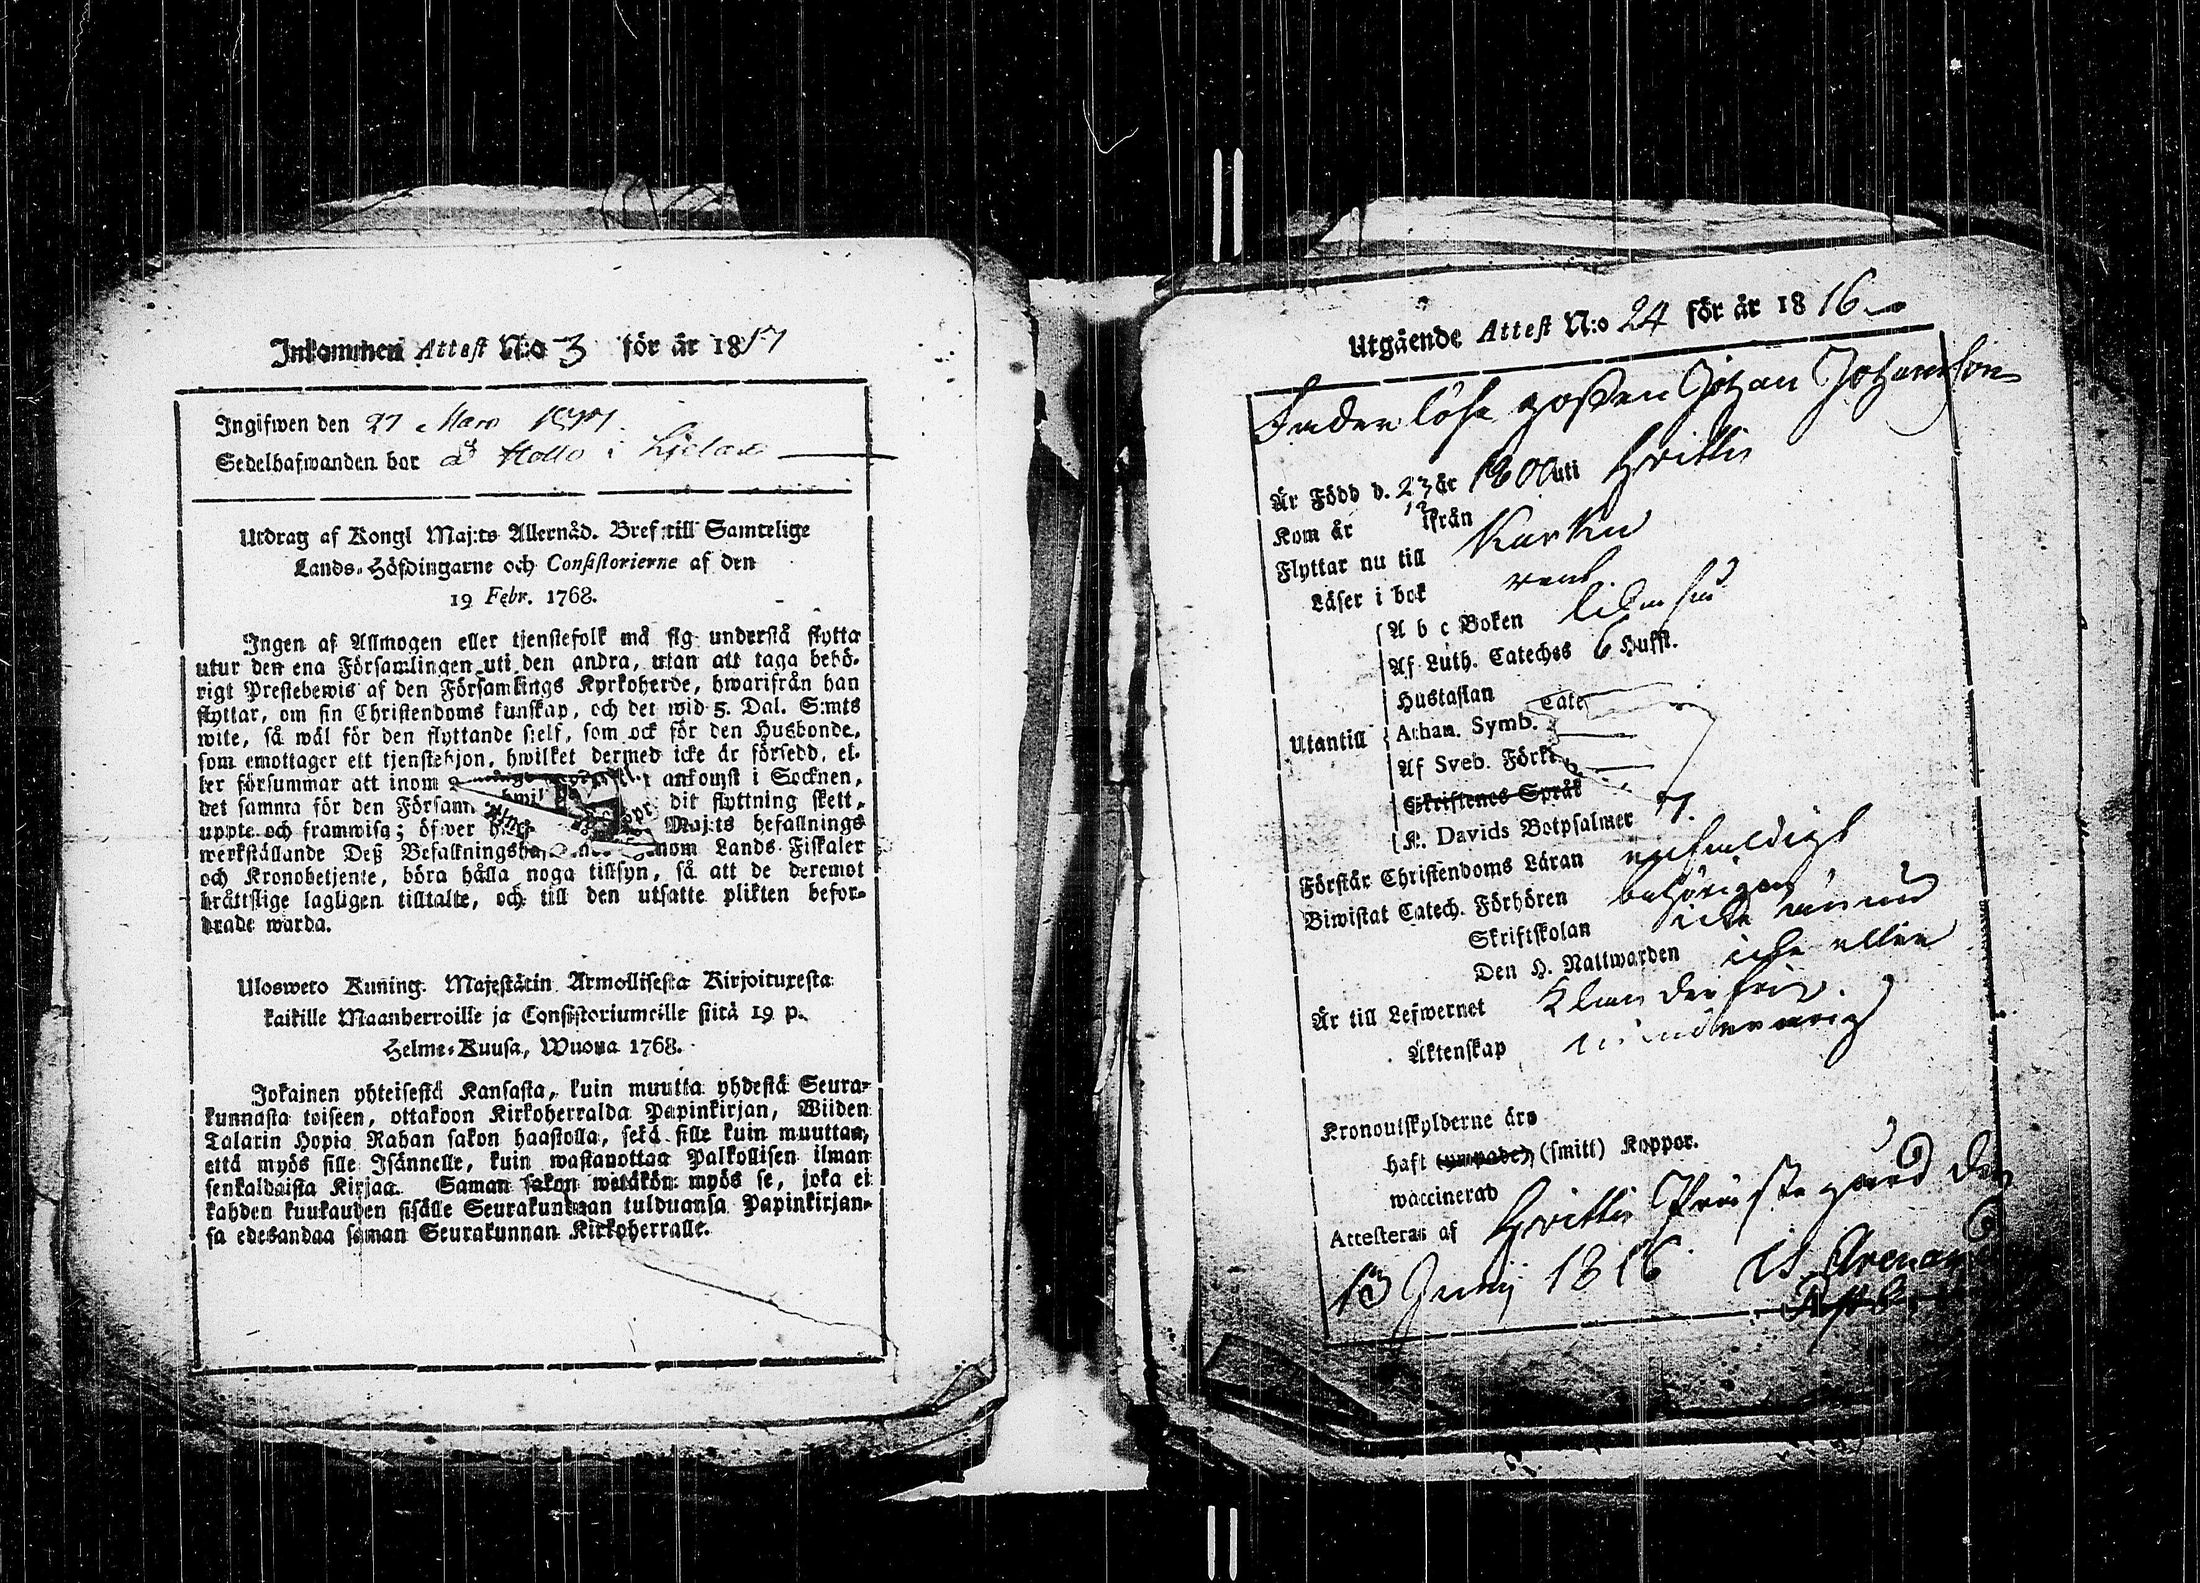 Inkommen Attest N:o 3 för år 1817
Ingifwen den 27 Mars 1817.
Sedelhafwanden bor å
Utdrag af Kongl Maj:ts Allernåd. Bref till Samtelige
Lands-Höfdingarne och Consistorierne af den
19 Febr. 1768.
Ingen af Allmogen eller tjenstefolk må sig understå flytta
utur den ena Församlingen uti den andra, utan att taga behö-
rigt Prestebewis af den Församlings Kyrkoherde, hwarifrån han
flyttar, om sin Christendoms kunskap, och det wid 5. Dal. S:mts
wite, så wäl för den flyttande sielf, som ock för den Husbonde,
som emottager ett tjenstehjon, hwilket dermed icke är försedd, el-
ler försummar att inom ankomst i Socknen,
det samma för den Försam dit flyttning skett,
uppte och framwisa; öfwer Maj:ts befallnings
werkställande Deß Befallningsha genom Lands-Fiskaler
och Kronobetjente, böra hålla noga tillsyn, så att de deremot
bråttslige lagligen tilltalte, och till den utsatte plikten befor-
drade warda.
Ulosweto Kuning. Majestätin Armollisesta Kirjoituxesta
kaikille Maanherroille ja Consistoriumeille siitä 19 p.
Helme-Kuusa, Wuona 1768.
Jokainen yhteisestä Kansasta, kuin muutta yhdestä Seura-
kunnasta toiseen, ottakoon Kirkoherralda Papinkirjan, Wiiden
Talarin Hopia Rahan sakon haastolla, sekä sille kuin muuttaa,
että myös sille Isännelle, kuin wastanottaa Palkollisen ilman
senkaldaista Kirjaa. Saman sakon wetäkön myös se, joka ei
kahden kuukauden sisälle Seurakundaan tulduansa Papinkirjan-
sa edesandaa saman Seurakunnan Kirkoherralle.
Utgående Attest N:o 24 för år 1816
Faderlöse goßen Johan Johansson
Är Född d. 23/12 år 1800 uti Hvittis
Kom år ifrån
Flyttar nu till Karku
Läser i bok rent.
Utantill
A b c Boken
Af Luth. Cateches 6 Hufst.
Hustaflan
Athan. Symb.
Af Sveb. Förkl
Skriftenes Språk
K. Davids Botpsalmer 7.
Förstår Christendoms Läran enfaldigt
Biwistat Catech. Förhören behörigen
Skriftskolan icke ännu
Den H. Nattwarden icke eller
Är till Lefwernet Klanderfri.
Äktenskap minderårig
Kronoutskylderne äro
haft (ympade) (smitt) Koppor.
waccinerad
Attesteras af Hvittis Prästegård den
13 Junij 1816